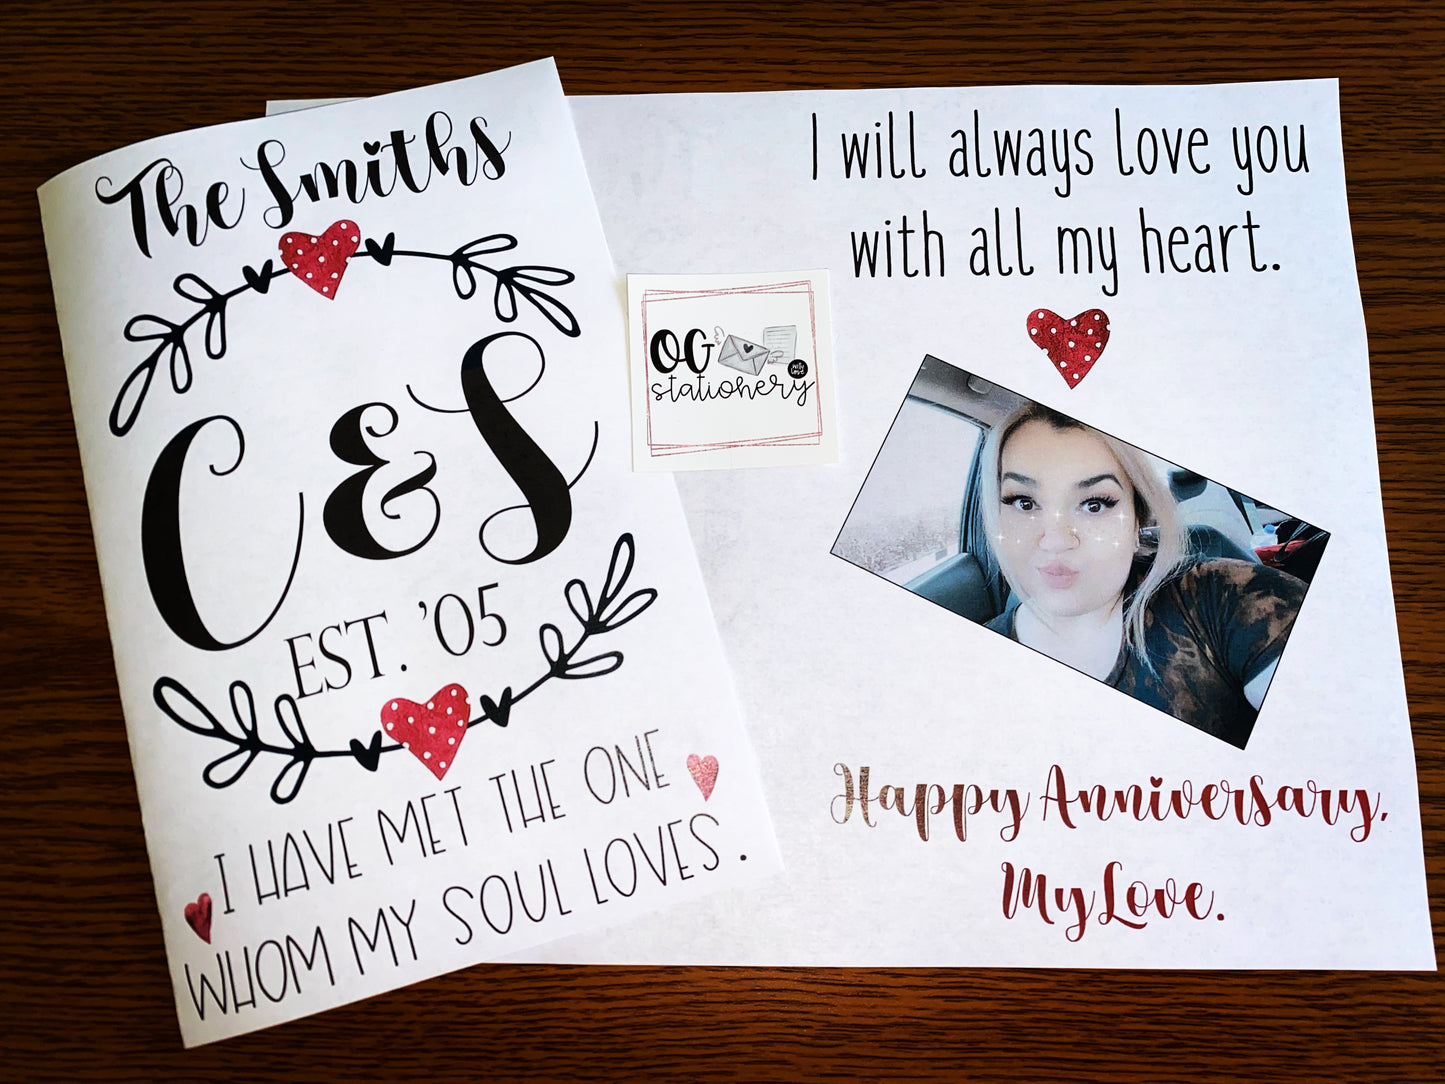 The Smiths
C & S
EST. '05
I HAVE MET THE ONE
WHOM MY SOUL LOVES .
OG
stationery
with
love
I will always love you
with all my heart.
Happy Anniversary,
My Love.